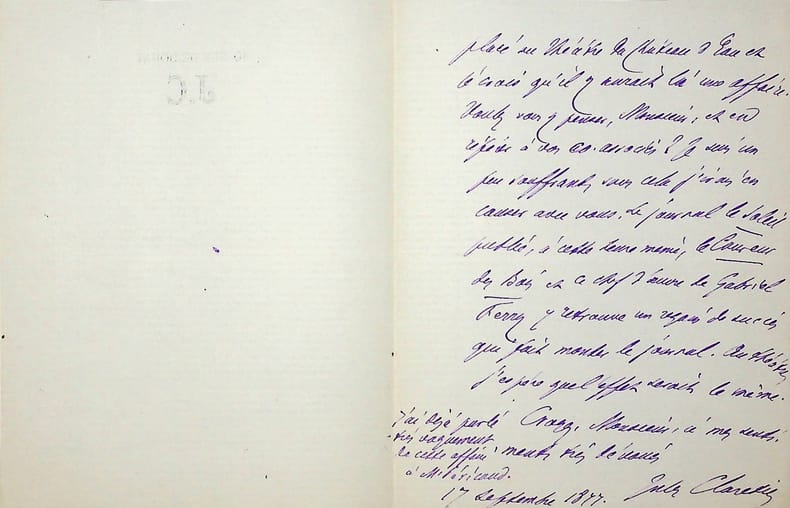 placé au Théâtre du Château d'Eau et
je crois qu'il y aurait là une affaire.
Voulez vous y penser, Monsieur, et en
référer à vos co-associés? Je suis un
peu souffrant, sans cela j'irais en
causer avec vous. Le journal le Soleil
publie, à cette heure même, le Coureur
des Bois et ce chef d'œuvre de Gabriel
Ferry y retrouve un regain de succès
qui fait monter le journal. Au théâtre,
j'espère que l'effet serait le même.
Croyez, Monsieur, à mes senti-
ments très dévoués
Jules Claretie
17 septembre 1877.
J'ai déjà parlé
très vaguement
de cette affaire
à Mr